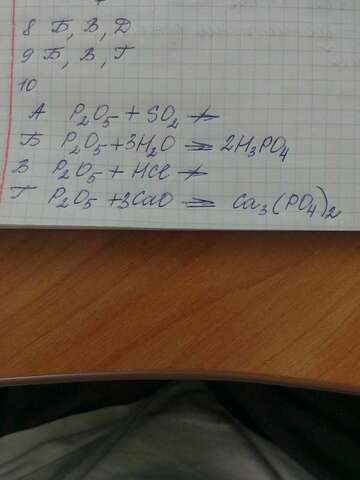 8 Б, В, Д
9 Б, В, Г
10
А P₂O₅ + SO₂ ↛
Б P₂O₅ + 3H₂O = 2H₃PO₄
В P₂O₅ + HCl ↛
Г P₂O₅ + 3CaO = Ca₃(PO₄)₂